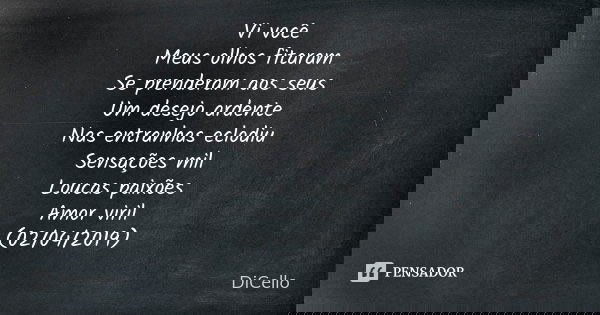 Vi você
Meus olhos fitaram
Se prenderam aos seus
Um desejo ardente
Nas entranhas eclodiu
Sensações mil
Loucas paixões
Amor viril
(02/04/2019)
DiCello
PENSADOR